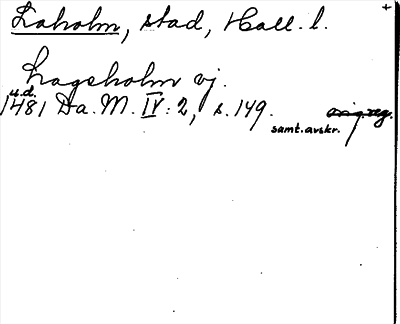 Laholm, stad, Hall. l. +
Lagaholm vj.
u.d.
1481 Da. M. IV: 2, s. 149. orig.reg.
samt.avskr.